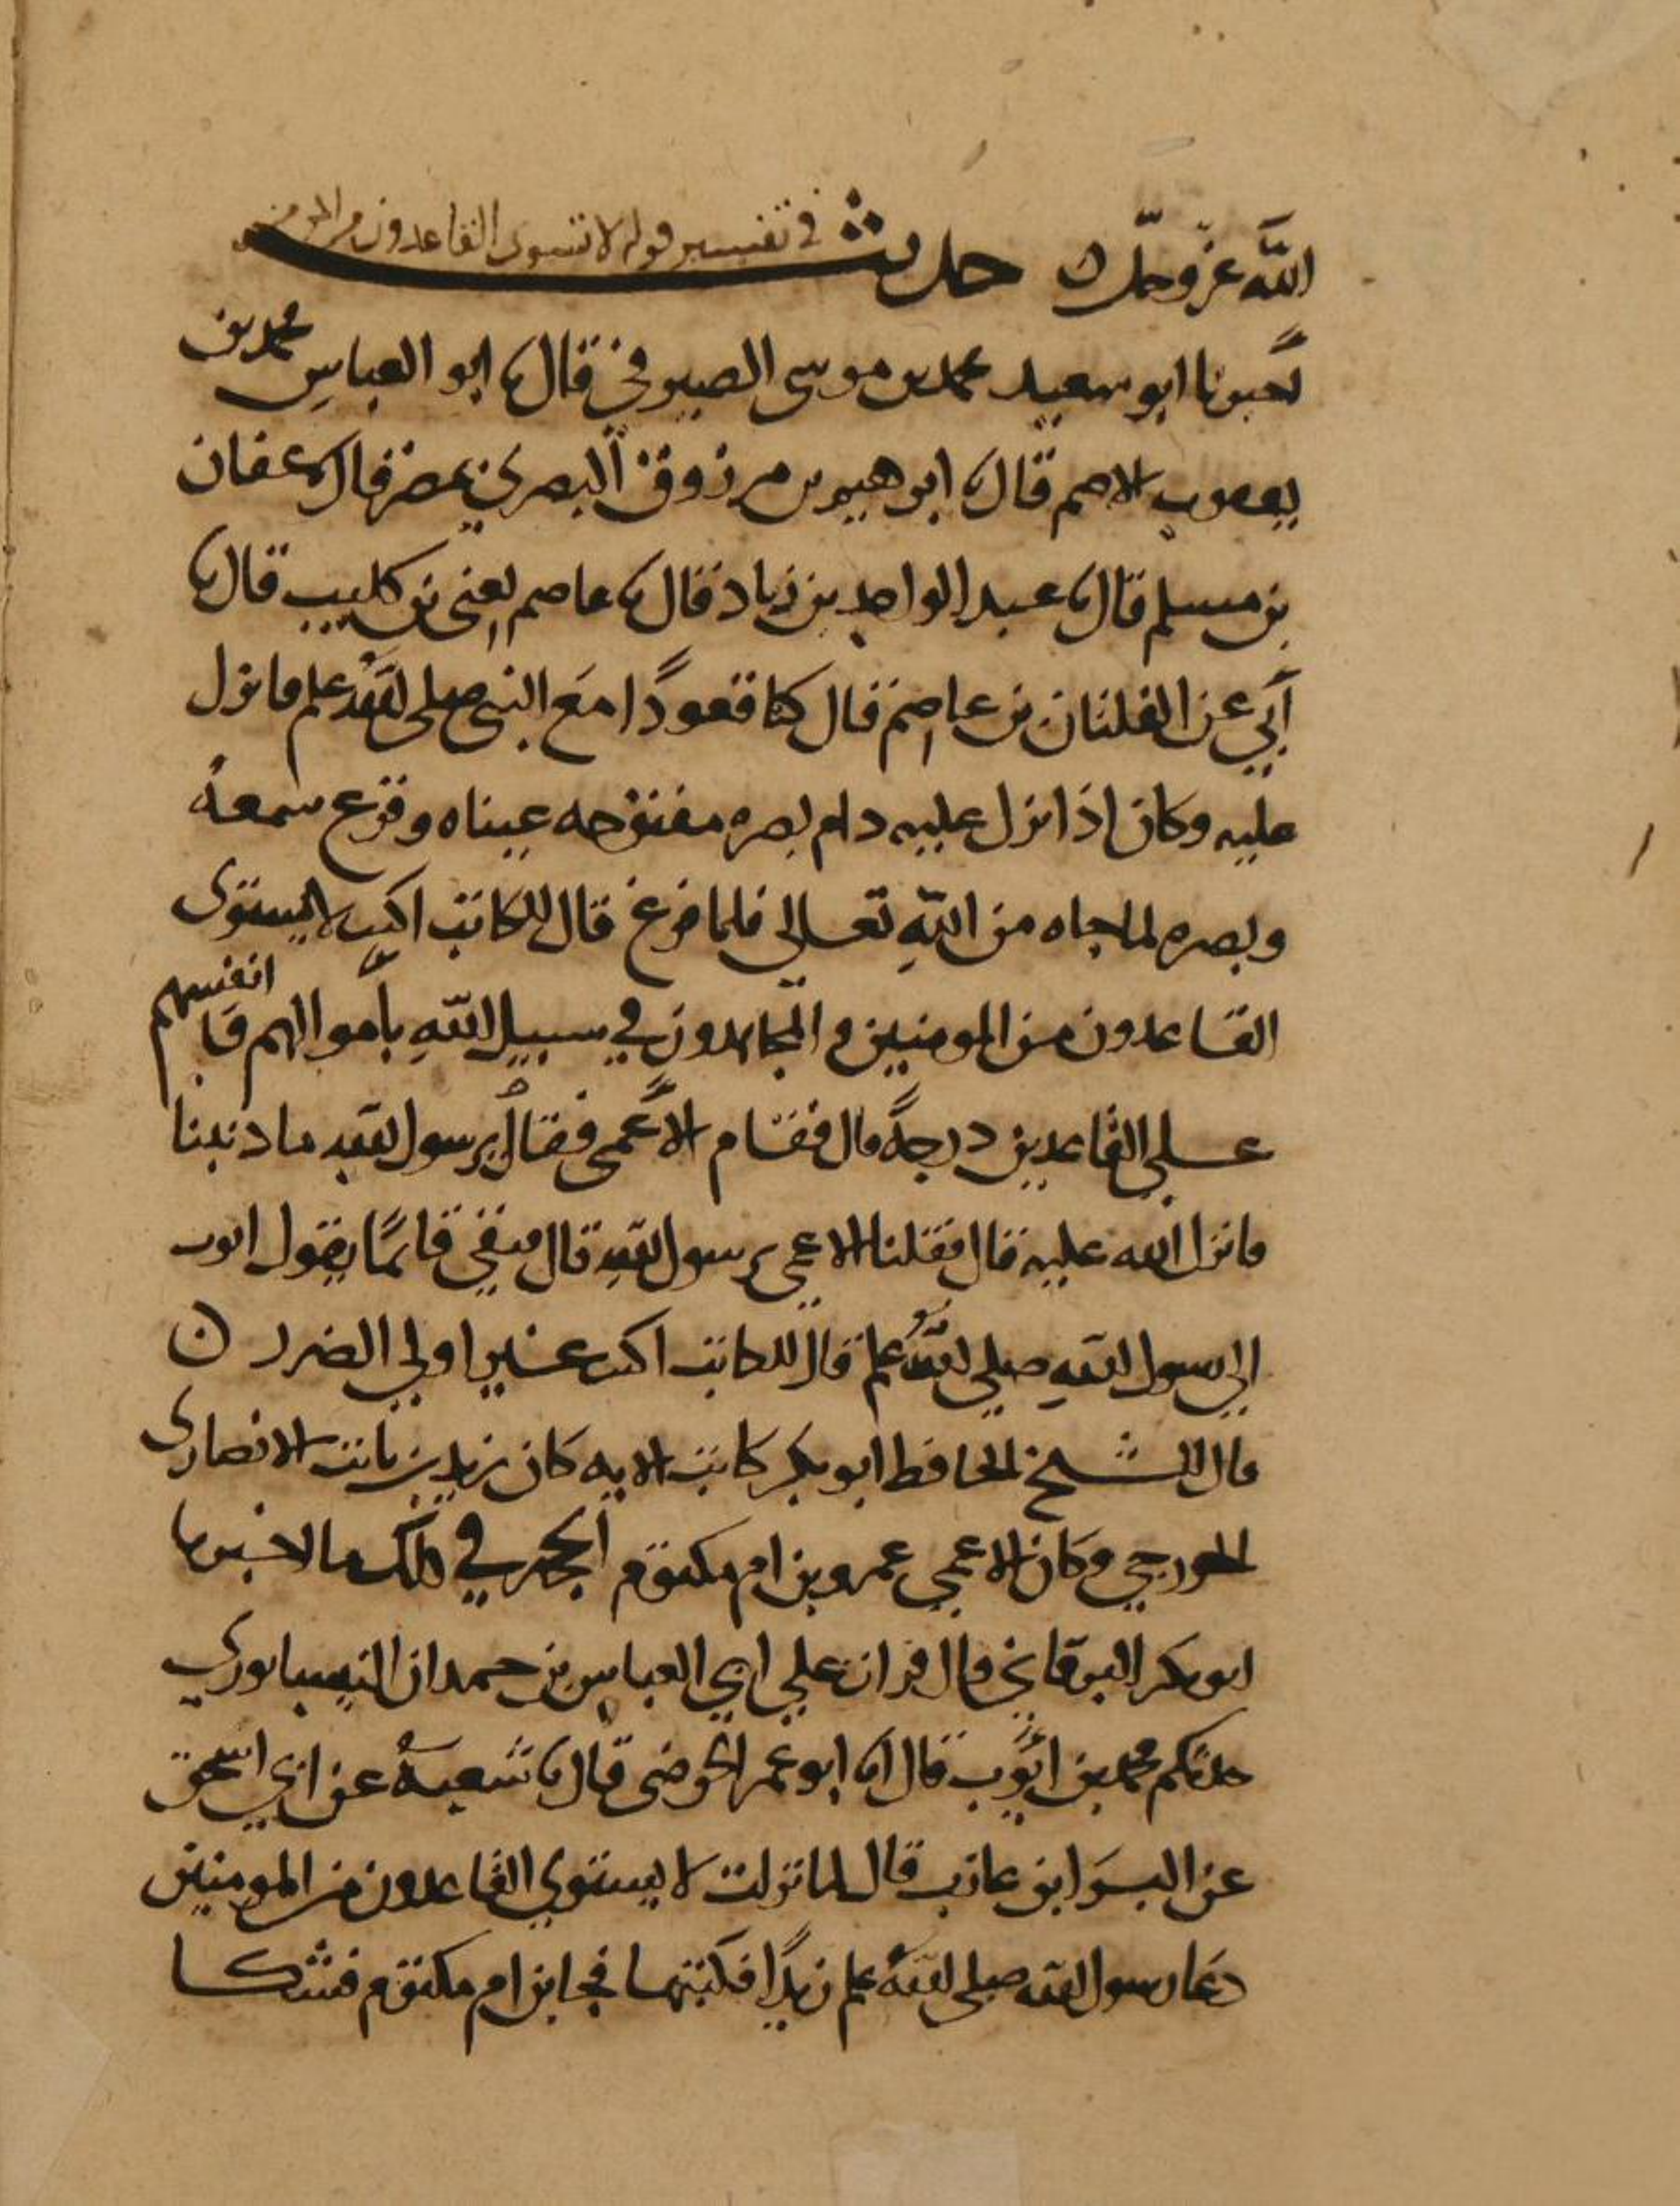 الله عز وجل ه حديث في تفسير قوله لا تستوى القاعدون من المومنين
اخبرنا ابو سعيد محمد بن موسى الصيرفي قال نا ابو العباس محمد بن
يعقوب الاصم قال نا ابرهيم بن مرزوق البصري بمصر قال نا عفان
بن مسلم قال نا عبد الواحد بن زياد قال نا عاصم يعنى بن كليب قال نا
أبي عن الفلتان بن عاصم قال كنا قعودًا مع النبي صلى الله علم فانزل
عليه وكان اذا نزل عليه دام بصره مفتوحه عيناه وفزع سمعه
وبصره لما جاه من الله تعالي فلما فرغ قال للكاتب اكتب لا يستوى
القاعدون من المومنين والمجاهدون في سبيل الله بأموالهم وانفسهم
علي القاعدين درجةً قال فقام الأعمى فقال يرسول الله ما ذنبنا
فانزل الله عليه قال فقلنا للاعمي يرسول الله قال فبقي قائمًا يقول اتوب
الي رسول الله صلي الله علم قال للكاتب اكتب غير اولي الضرر ه
قال الشيخ الحافظ ابو بكر كاتب الايه كان زيد بن ثابت الانصارى
الخزرجي وكان الاعمي عمرو بن ام مكتوم الحجه في ذلك ما اخبرنا
ابو بكر البرقاني قال قرات علي ابي العباس بن حمدان النيسابوري
حدثكم محمد بن ايوب قال انا ابو عمر الحوضى قال نا شعبة عن ابي اسحق
عن البرَا بن عازب قال لما نزلت لا يستوي القاعدون من المومنين
دعا رسول الله صلى الله علم زيدًا فكتبها فجا ابن ام مكتوم فشكا